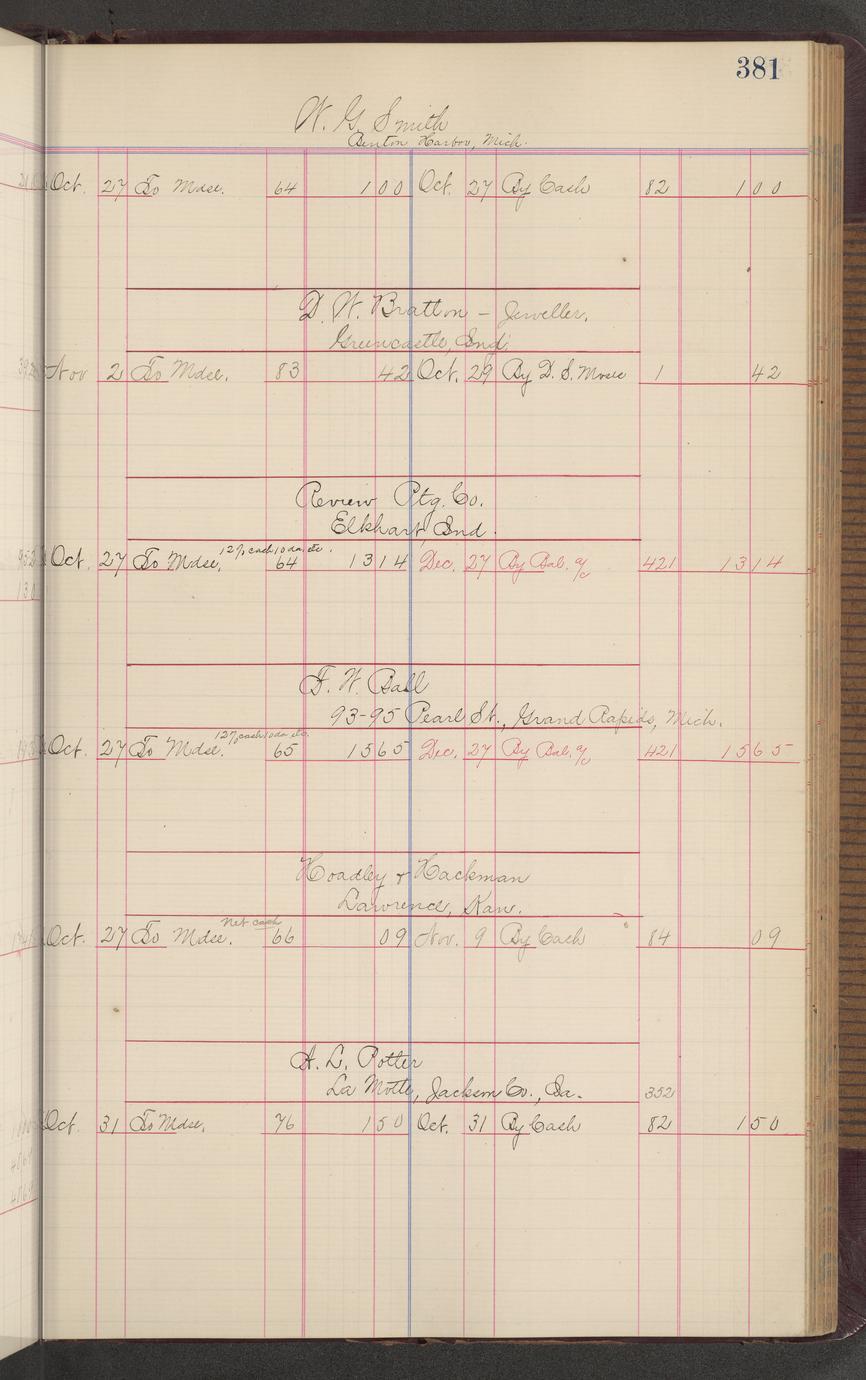 381
W. G. Smith
Benton Harbor, Mich.
Oct. 27 To Mdse. 64 1 00 Oct. 27 By Cash 82 1 00
D. W. Bratton – Jeweller,
Greencastle, Ind.
Nov 2 To Mdse. 83 42 Oct. 29 By D. S. 1 42
Review Ptg. Co.
Elkhart, Ind.
12% cash 10 da. etc.
Oct. 27 To Mdse. 64 13 14 Dec. 27 By Bal. a/c 421 13 14
F. W. Ball
93-95 Pearl St., Grand Rapids, Mich.
12% cash 10 da. etc.
Oct. 27 To Mdse. 65 15 65 Dec. 27 By Bal. a/c 421 15 65
Hoadley & Hackman
Lawrence, Kan.
Net cash
Oct. 27 To Mdse. 66 09 Nov. 9 By Cash 84 09
A. L. Potter
La Motte, Jackson Co., Ia. 352
Oct. 31 To Mdse. 76 1 50 Oct. 31 By Cash 82 1 50